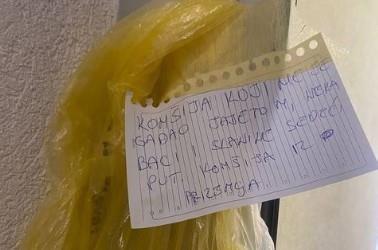 KOMŠIJA KOJI ME JE
GAĐAO JAJETOM, NEKA
BACI SLANINE SEDEĆI
PUT KOMŠIJA IZ
PRIZEMJA